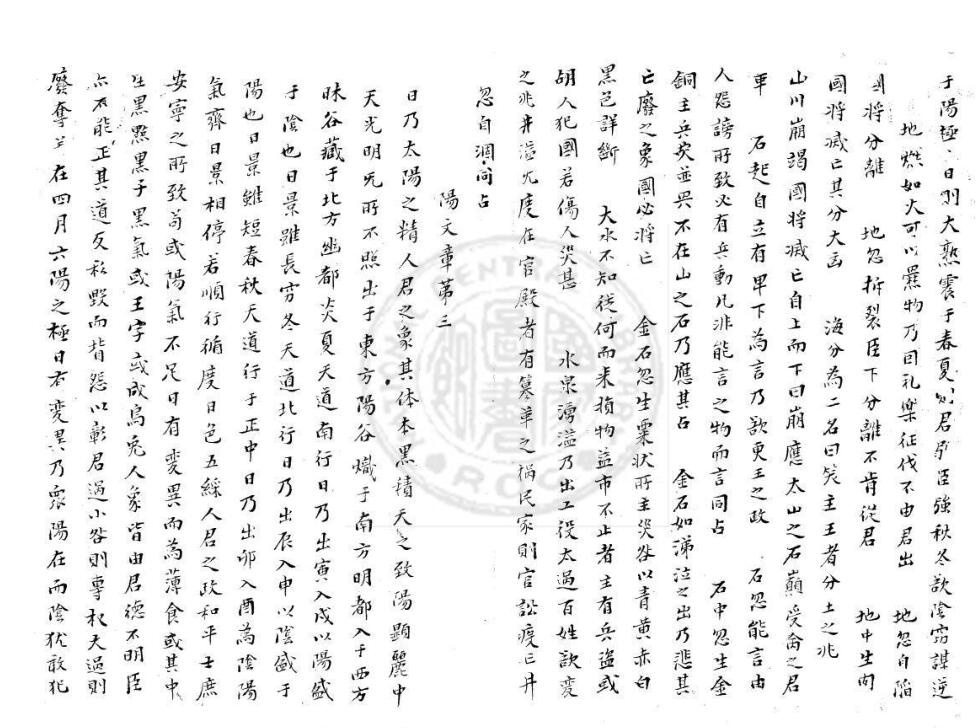 于陽極日則大熱震于春夏則君弱臣強秋冬歆陰窮謀逆
地燃如火可以爨物乃因礼樂征伐不由君出　地忽自陷
國將分離　地忽拆裂臣下分離不肯從君　地中生
國將滅亡其分大凶　海分為二名曰　主王者分土之兆
山川崩竭國將滅亡自上而下曰崩應太山之石巔受禽之君
石起自立有早下為言乃欲更王之政　石忽能言由
人怨謗所致必有兵動凡非能言之物而言同占　石中忽生金
銅主兵災並興不在山之石乃應其占　金石如涕泣之出乃悲其
亡廢之象國必將亡　金石忽生粟狀所主災咎以青黃赤白
黑色詳斷　大水不知從何而来損物益市不止者主有兵盜或
胡人犯國若傷人災甚　水泉湧溢乃出工役太過百姓歆變
之兆井溢尤度在官殿者有篡華之禍民家則官訟疾亡井
忽自涸同占
陽文章第三
日乃太陽之精人君之象其体本黑積天之致陽顯麗中
天光明旡所不照出于東方陽谷熾于南方明都入于西方
昧谷藏于北方幽都炎夏天道南行日乃出寅入戌以陽盛
于陰也日景雖長窮冬天道北行日乃出辰入申以陰盛于
陽也日景雖短春秋天道行于正中日乃出卯入酉為陰陽
氣齊日景相停若順行循度日色五綵人君之政和平士庶
安寧之所致苟或陽氣不足日有變異而為薄食或其中
生黑點黑子黑氣或王字或成鳥兎人象皆由君德不明臣
亦不能正其道反私毀而皆怨以彰君過小咎則專权大過則
廢奪並在四月六陽之極日有變異乃衆陽在而陰犹敢犯